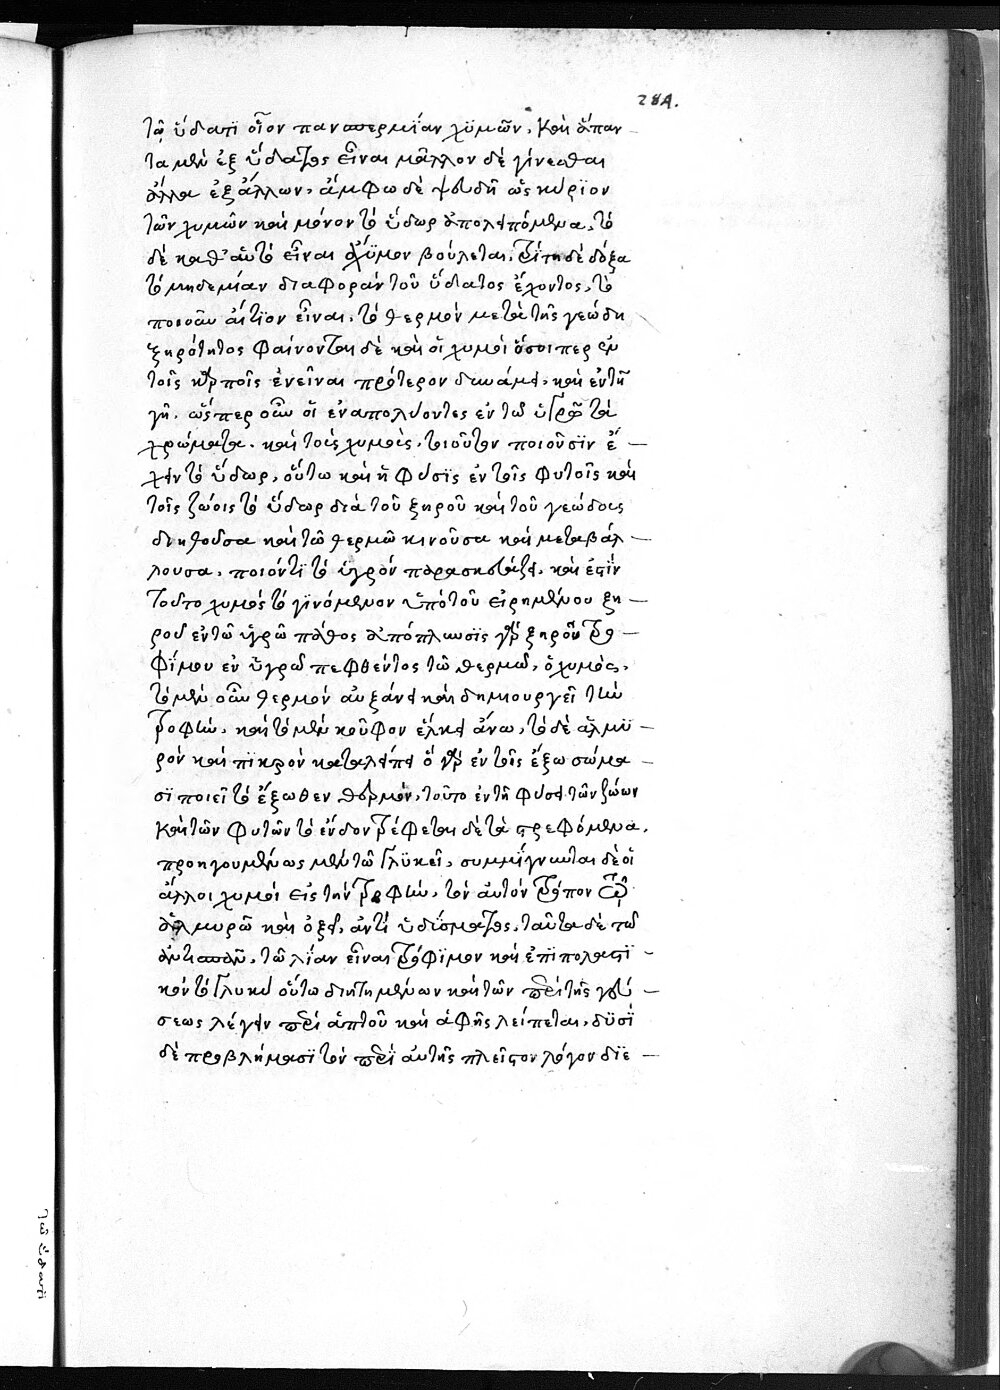 284.
τῷ ὕδατϊ οἷον πανσπερμίαν χϋμῶν, καὶ ἅπαν
τα μὲν ἐξ ὕδατος εἶναι μᾶλλον δὲ γίνεσθαι
ἄλλα ἐξ ἄλλων, ἄμφω δὲ ψευδῆ ὡς κύρϊον
τῶν χυμῶν καὶ μόνον τὸ ὕδωρ ἀπολειπόμενα, τὸ
δὲ καθ' αὑτὸ εἶναι ἄχϋμον βούλεται, τρίτη δὲ δόξα
τὸ μηδεμίαν διαφορὰν τοῦ ὕδατος ἔχοντος, τὸ
ποιοῦν αἴτϊον εἶναι, τὸ θερμὸν μετὰ τῆς γεώδη
ξηρότητος φαίνονται δὲ καὶ οἱ χυμοὶ ὅσοιπερ ἐν
τοῖς καρποῖς ἐνεῖναι πρότερον δυνάμει, καὶ ἐν τῇ
γῇ, ὥσπερ οὖν οἱ ἐναπολύοντες ἐν τῶ ὑγρῷ τὰ
χρώματα. καὶ τοὺς χυμοὺς, τοιοῦτον ποιοῦσϊν ἔ
χειν τὸ ὕδωρ, οὕτω καὶ ἡ φύσϊς ἐν τοῖς φυτοῖς καὶ
τοῖς ζώοις τὸ ὕδωρ διὰ τοῦ ξηροῦ καὶ τοῦ γεώδους
διηθοῦσα καὶ τῶ θερμῶ κινοῦσα καὶ μεταβάλ
λουσα, ποιόντϊ τὸ ὑγρὸν παρασκευάζει, καὶ ἔστϊν
τοῦτο χυμὸς τὸ γϊνόμενον ὑπὸ τοῦ εἰρημένου ξη
ροῦ ἐν τῶ ὑγρῶ πάθος ἀπόπλυσϊς γὰρ ξηροῦ τρο
φϊμου ἐν ὑγρῶ πεφθέντος τῶ θερμῶ, ὁ χυμὸς,
τὸ μὲν οὖν θερμὸν αὐξάνει καὶ δημιουργεῖ τὴν
τροφὴν, καὶ τὸ μὲν κοῦφον ἕλκει ἄνω, τὸ δὲ ἁλμϋ
ρὸν καὶ πϊκρὸν καταλείπει ὃ γὰρ ἐν τοῖς ἔξω σώμα
σϊ ποιεῖ τὸ ἔξωθεν θερμὸν, τοῦτο ἐν τῇ φύσει τῶν ζώων
καὶ τῶν φυτῶν τὸ ἔνδον τρέφεται δὲ τὰ τρεφόμενα,
προηγουμένως μὲν τῶ γλϋκεῖ, συμμίγνυται δὲ οἱ
ἄλλοι χυμοὶ εἰς τὴν τροφὴν, τὸν αὐτὸν τρόπον τῷ
ἁλμυρῶ καὶ ὀξεῖ, ἀντὶ ἡδύσματος, ταῦτα δὲ τῶ
ἀντισπᾶν, τῶ λίαν εἶναι τρόφϊμον καὶ ἐπϊπολαστϊ
κὸν τὸ γλυκὺ οὕτω διητημένων καὶ τῶν περὶ τῆς γεύ
σεως λέγειν περὶ ἁπτοῦ καὶ ἁφῆς λείπεται, δϋσϊ
δὲ προβλήμασϊ τὸν περὶ αὐτῆς πλεῖστον λόγον δϊε
τῶ ὕδατϊ